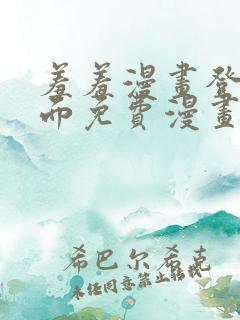 羞羞漫畫登
而免費漫畫
希巴尔希克
未经同意禁止转载